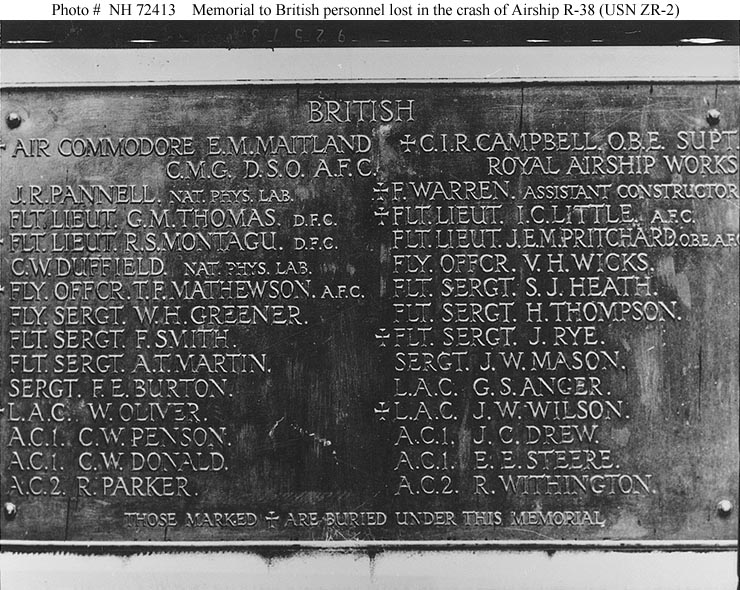 Photo # NH 72413 Memorial to British personnel lost in the crash of Airship R-38 (USN ZR-2)
BRITISH
✠ AIR COMMODORE E.M.MAITLAND
C.M.G. D.S.O. A.F.C.
J.R.PANNELL. NAT. PHYS. LAB.
FLT. LIEUT. G.M.THOMAS. D.F.C.
✠ FLT. LIEUT. R.S.MONTAGU. D.F.C.
C.W.DUFFIELD. NAT. PHYS. LAB.
✠ FLY. OFFCR. T.F.MATHEWSON. A.F.C.
FLY SERGT. W.H.GREENER.
FLT. SERGT. F.SMITH.
FLT. SERGT. A.T.MARTIN.
SERGT. F.E.BURTON.
✠ L.A.C. W.OLIVER.
A.C.1. C.W.PENSON.
A.C.1. C.W.DONALD.
A.C.2. R.PARKER.
✠ C.I.R.CAMPBELL, O.B.E. SUPT.
ROYAL AIRSHIP WORKS
✠ F.WARREN. ASSISTANT CONSTRUCTOR
✠ FLT. LIEUT. I.C.LITTLE. A.F.C.
FLT. LIEUT. J.E.M.PRITCHARD. O.B.E. A.F.C
FLY. OFFCR. V.H.WICKS.
FLT. SERGT. S.J.HEATH.
FLT. SERGT. H.THOMPSON.
✠ FLT. SERGT. J.RYE.
SERGT. J.W.MASON.
L.A.C. G.S.ANGER.
✠ L.A.C. J.W.WILSON.
A.C.1. J.C.DREW.
A.C.1. E.E.STEERE.
A.C.2. R.WITHINGTON.
THOSE MARKED ✠ ARE BURIED UNDER THIS MEMORIAL